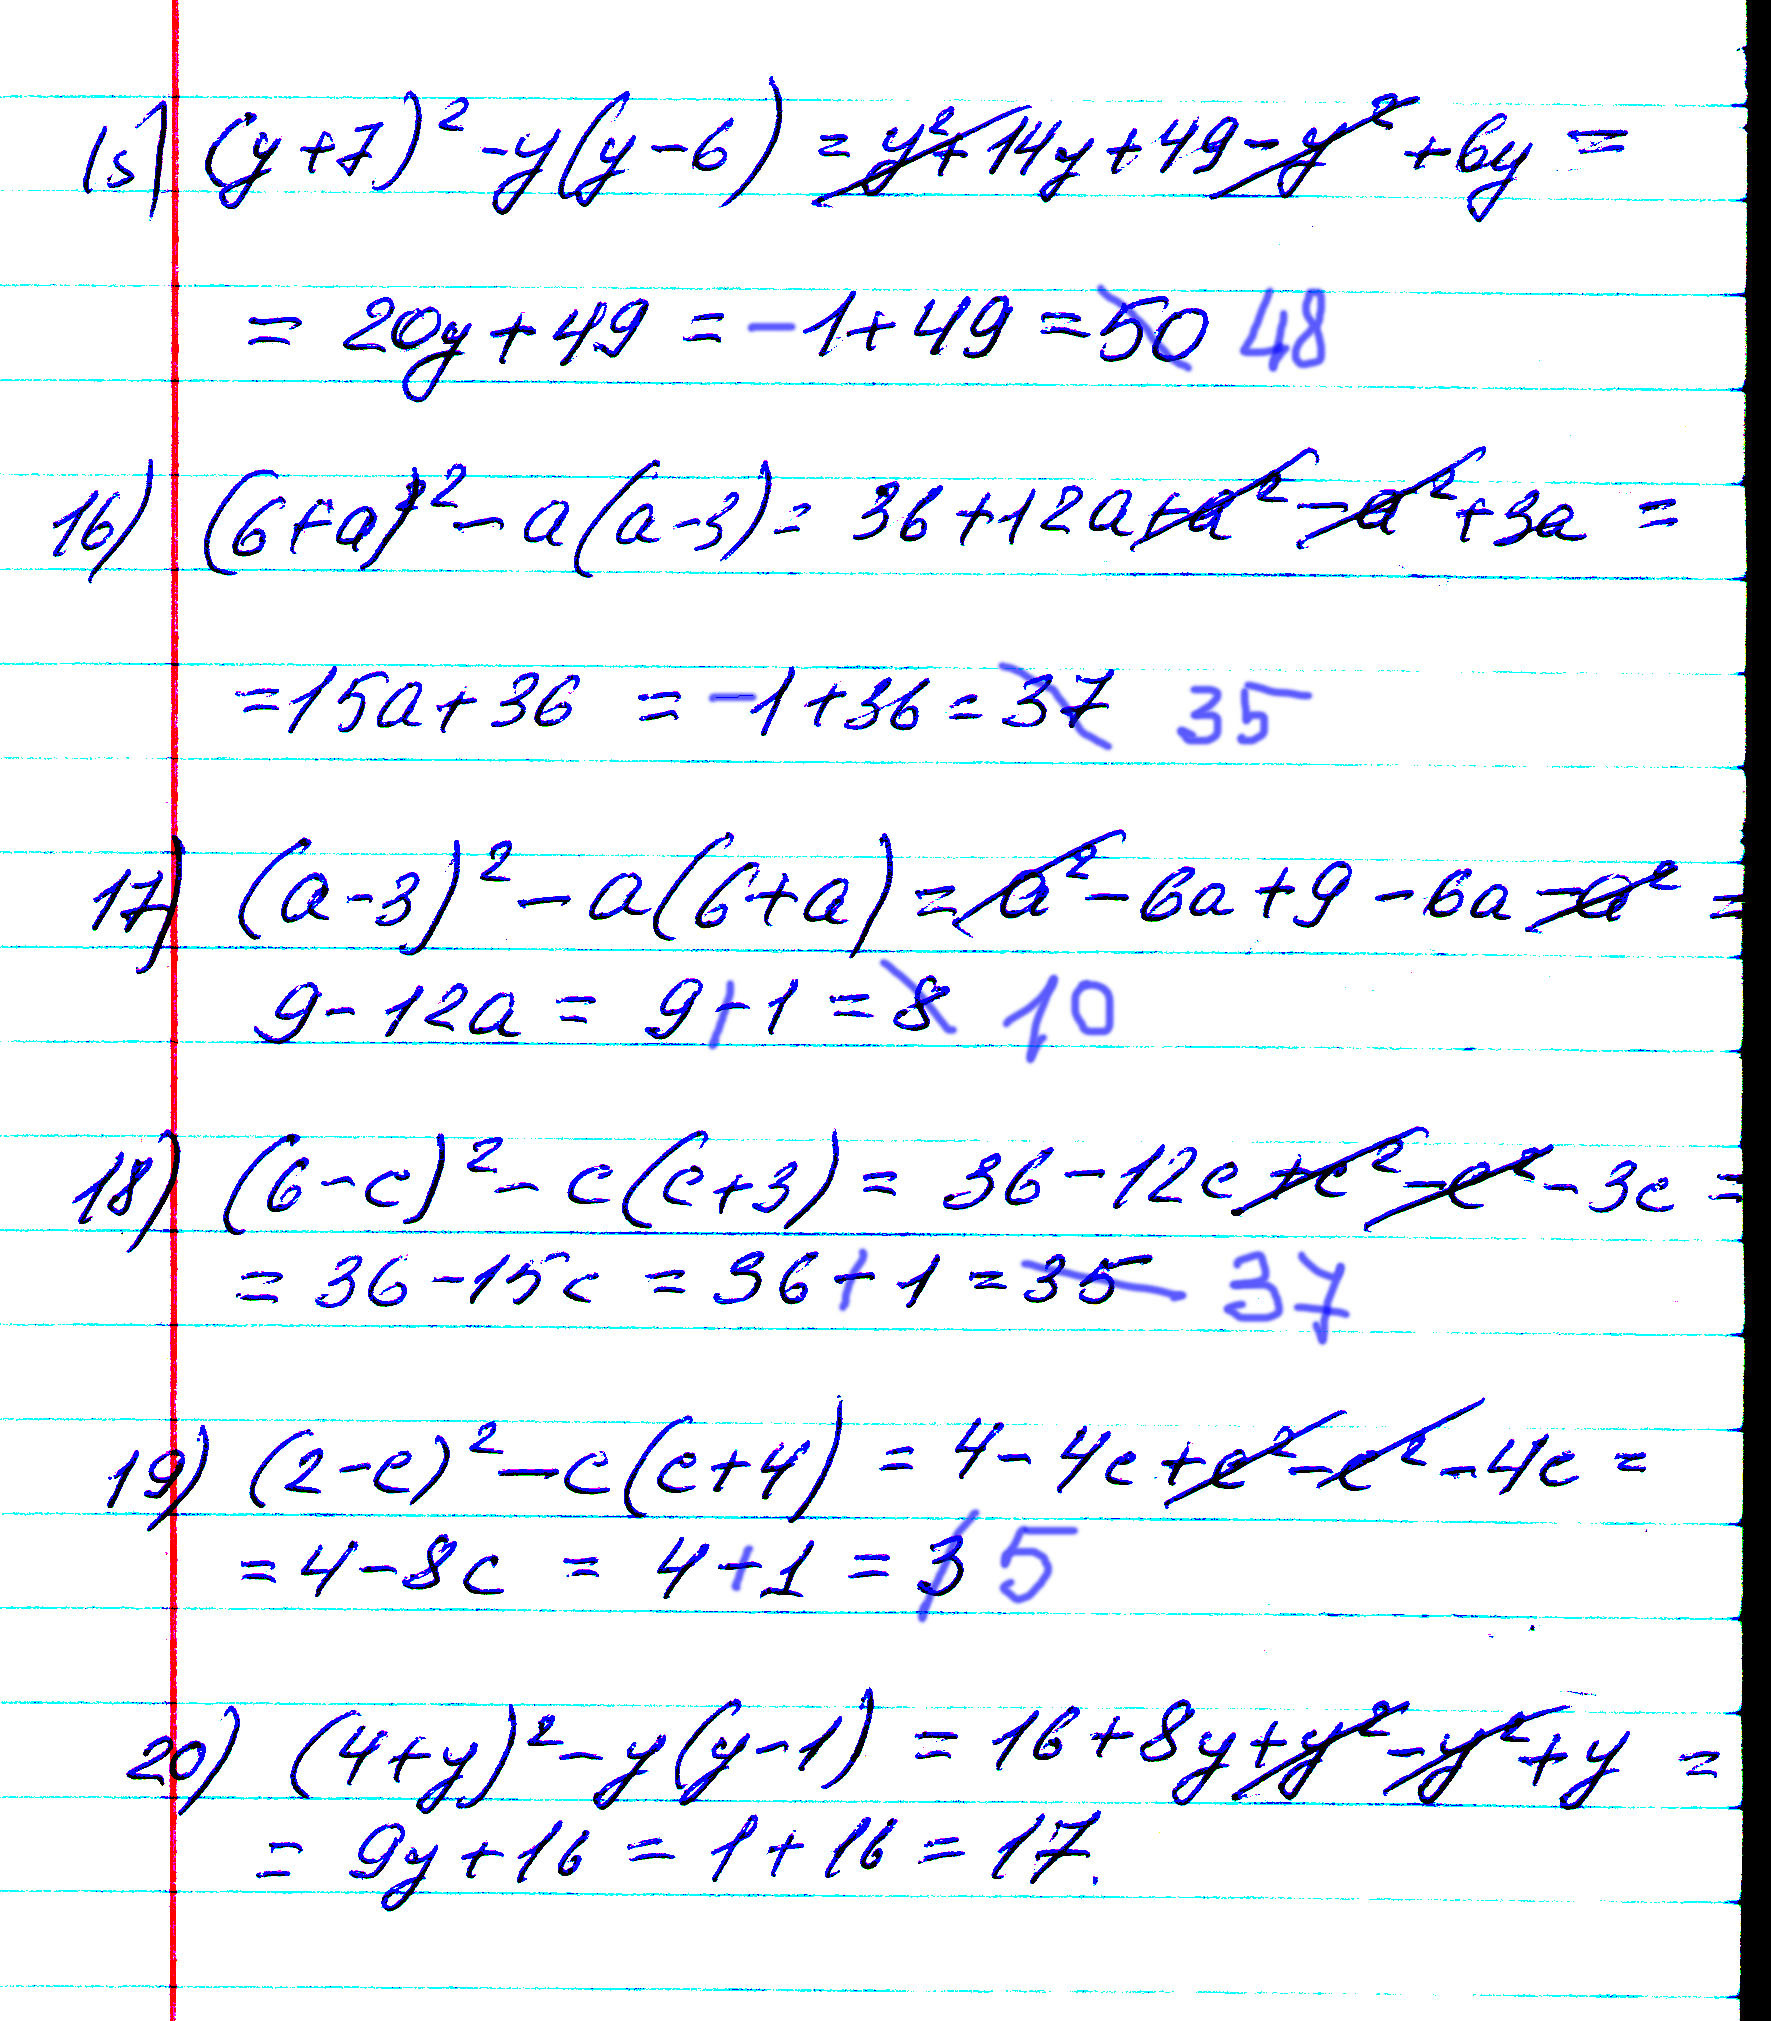 15) (y+7)² -y(y-6) = y²+14y+49-y²+6y =
= 20y+49 = -1+49 = 50 48
16) (6+a)² - a(a-3) = 36+12a+a²-a²+3a =
=15a+36 = -1+36 = 37 35
17) (a-3)² - a(6+a) = a²-6a+9-6a-a² =
9-12a = 9+1 = 8 10
18) (6-c)² - c(c+3) = 36-12c+c²-c²-3c =
= 36-15c = 36+1 = 35 37
19) (2-c)² - c(c+4) = 4-4c+c²-c²-4c =
= 4-8c = 4+1 = 3 5
20) (4+y)² - y(y-1) = 16+8y+y²-y²+y =
= 9y+16 = 1+16 = 17.